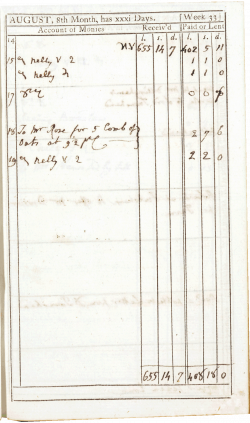 AUGUST, 8th Month, has xxxi Days. [Week 33
Account of Monies Receiv'd Paid or Lent
l. s. d. l. s. d.
14 655 14 7 402 5 11
15 nelly v 2 1 1 0
nelly 1 1 0
17 0 6
18 To Mr Rose for 5 Comb of 2 7 6
Oats at 9s
19 nelly v 2 2 2 0
655 14 7 408 18 0